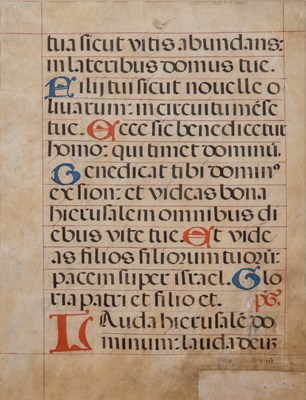 tua sicut vitis abundans:
in lateribus domus tue.
Filij tui sicut nouelle o
liuarum: in circuitu mēse
tue. Ecce sic benedicetur
homo: qui timet dominū.
Benedicat tibi dominꝰ
ex sion: et videas bona
hierusalem omnibus di
ebus vite tue. Et vide
as filios filiorum tuorū:
pacem super israel. Glo
ria patri et filio et. ps.
Lauda hierusalē do
minum: lauda deū